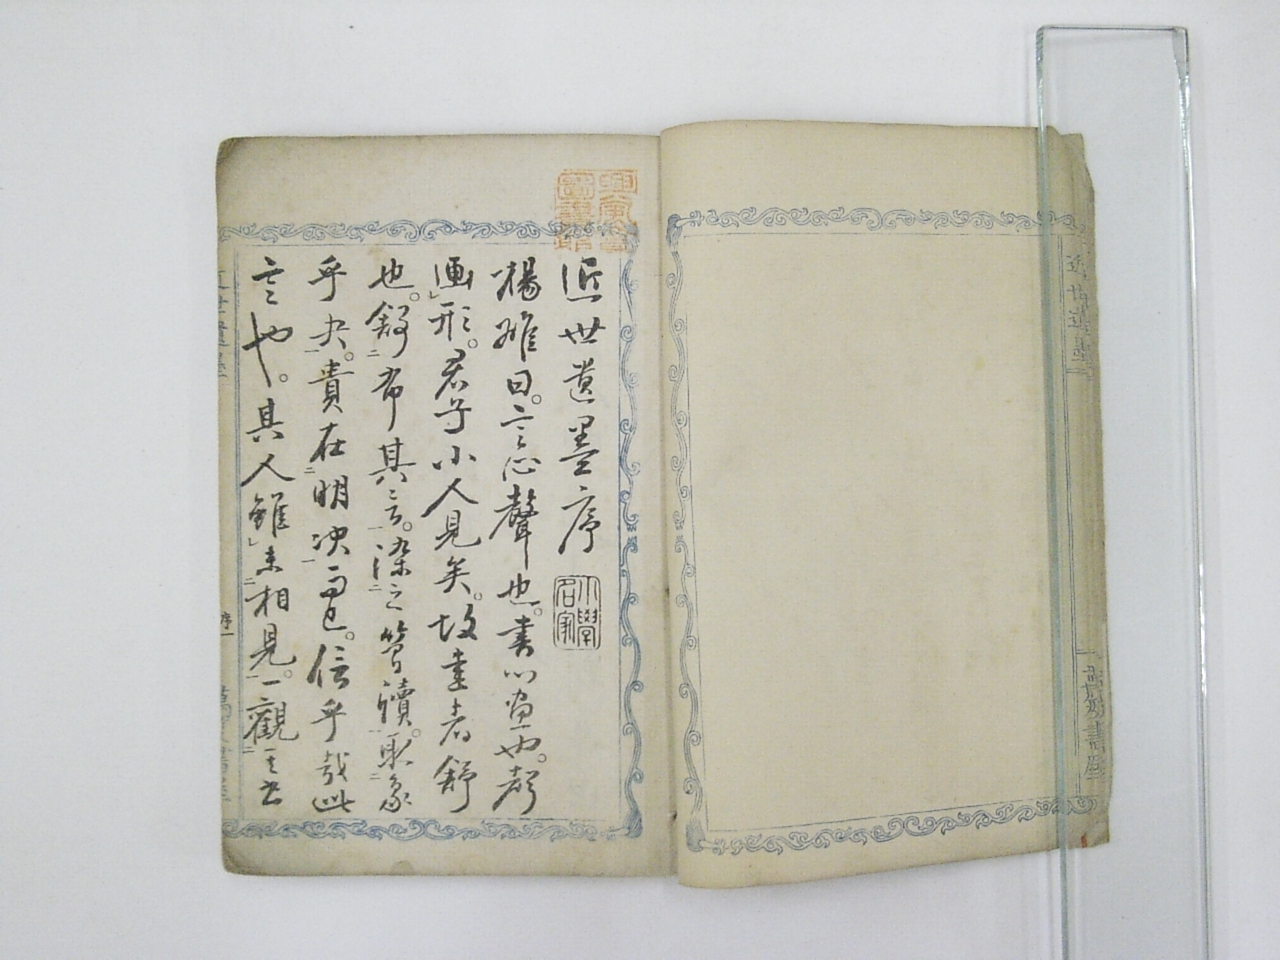 近世遺墨
近世遺墨序
小學
名家
楊雄曰。言心聲也。書心画也。聲
画形。君子小人見矣。故書者舒
也。舒布其言。染之簡牘。取象
乎夬。貴在明决而已。信乎哉此
言也。其人雖未相見。一觀其書
近世遺墨
序一